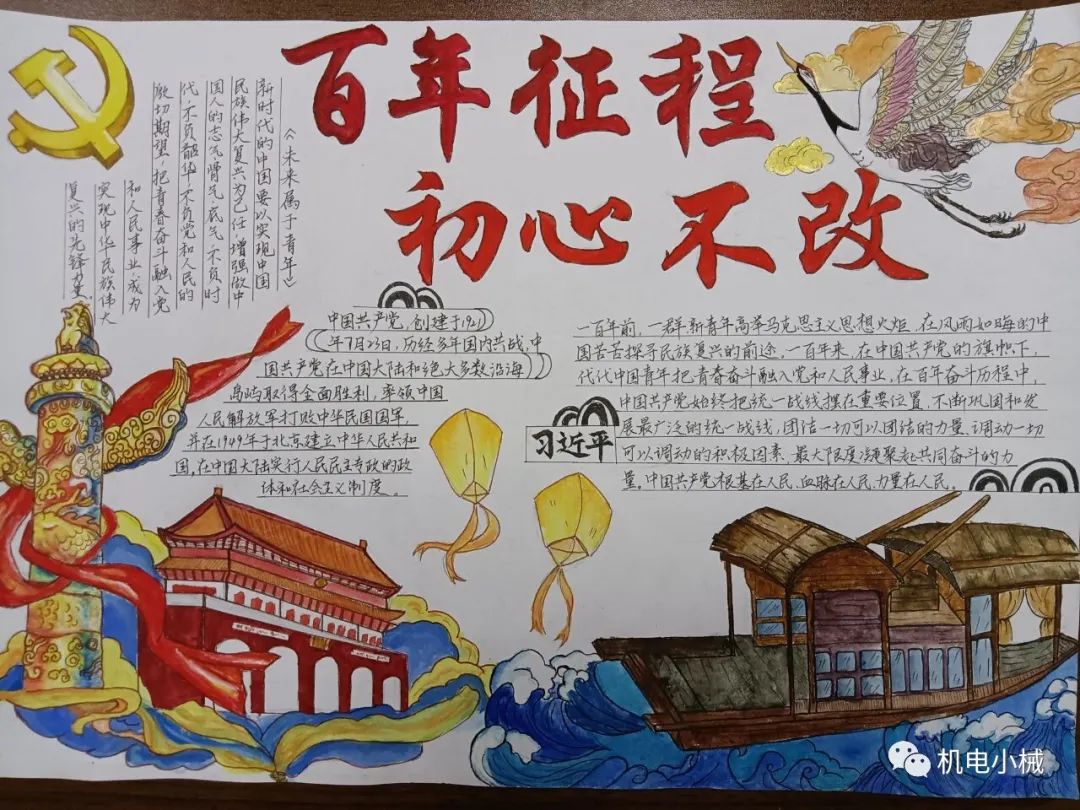 百年征程
初心不改
《未来属于青年》
新时代的中国要以实现中国
民族伟大复兴为己任,增强做中
国人的志气骨气底气不负时
代,不负韶华,不负党和人民的
殷切期望,把青春奋斗融入党
和人民事业,成为
实现中华民族伟大
复兴的先锋力量。
中国共产党,创建于1921
年7月23日,历经多年国内共战,中
国共产党在中国大陆和绝大多数沿海
岛屿取得全面胜利,率领中国
人民解放军打败中华民国国军,
并在1949年于北京建立中华人民共和
国,在中国大陆实行人民民主专政的政
体和社会主义制度。
一百年前,一群新青年高举马克思主义思想火炬,在风雨如晦的中
国苦苦探寻民族复兴的前途,一百年来,在中国共产党的旗帜下,
代代中国青年把青春奋斗融入党和人民事业,在百年奋斗历程中,
中国共产党始终把统一战线摆在重要位置,不断巩固和发
展最广泛的统一战线,团结一切可以团结的力量、调动一切
可以调动的积极因素,最大限度凝聚起共同奋斗的力
量。中国共产党根基在人民、血脉在人民、力量在人民。
习近平
机电小械